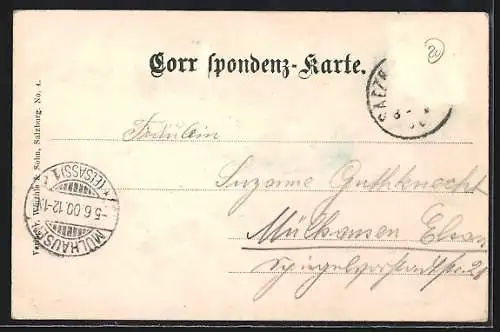 Corr spondenz-Karte.
20
Fräulein
Suzanne Guthknecht
Mülhausen Elsass
Verlag v. Würthle & Sohn, Salzburg. No. 4.
MÜLHAUSEN
-5.6.00.12-1
(ELSASS) 1